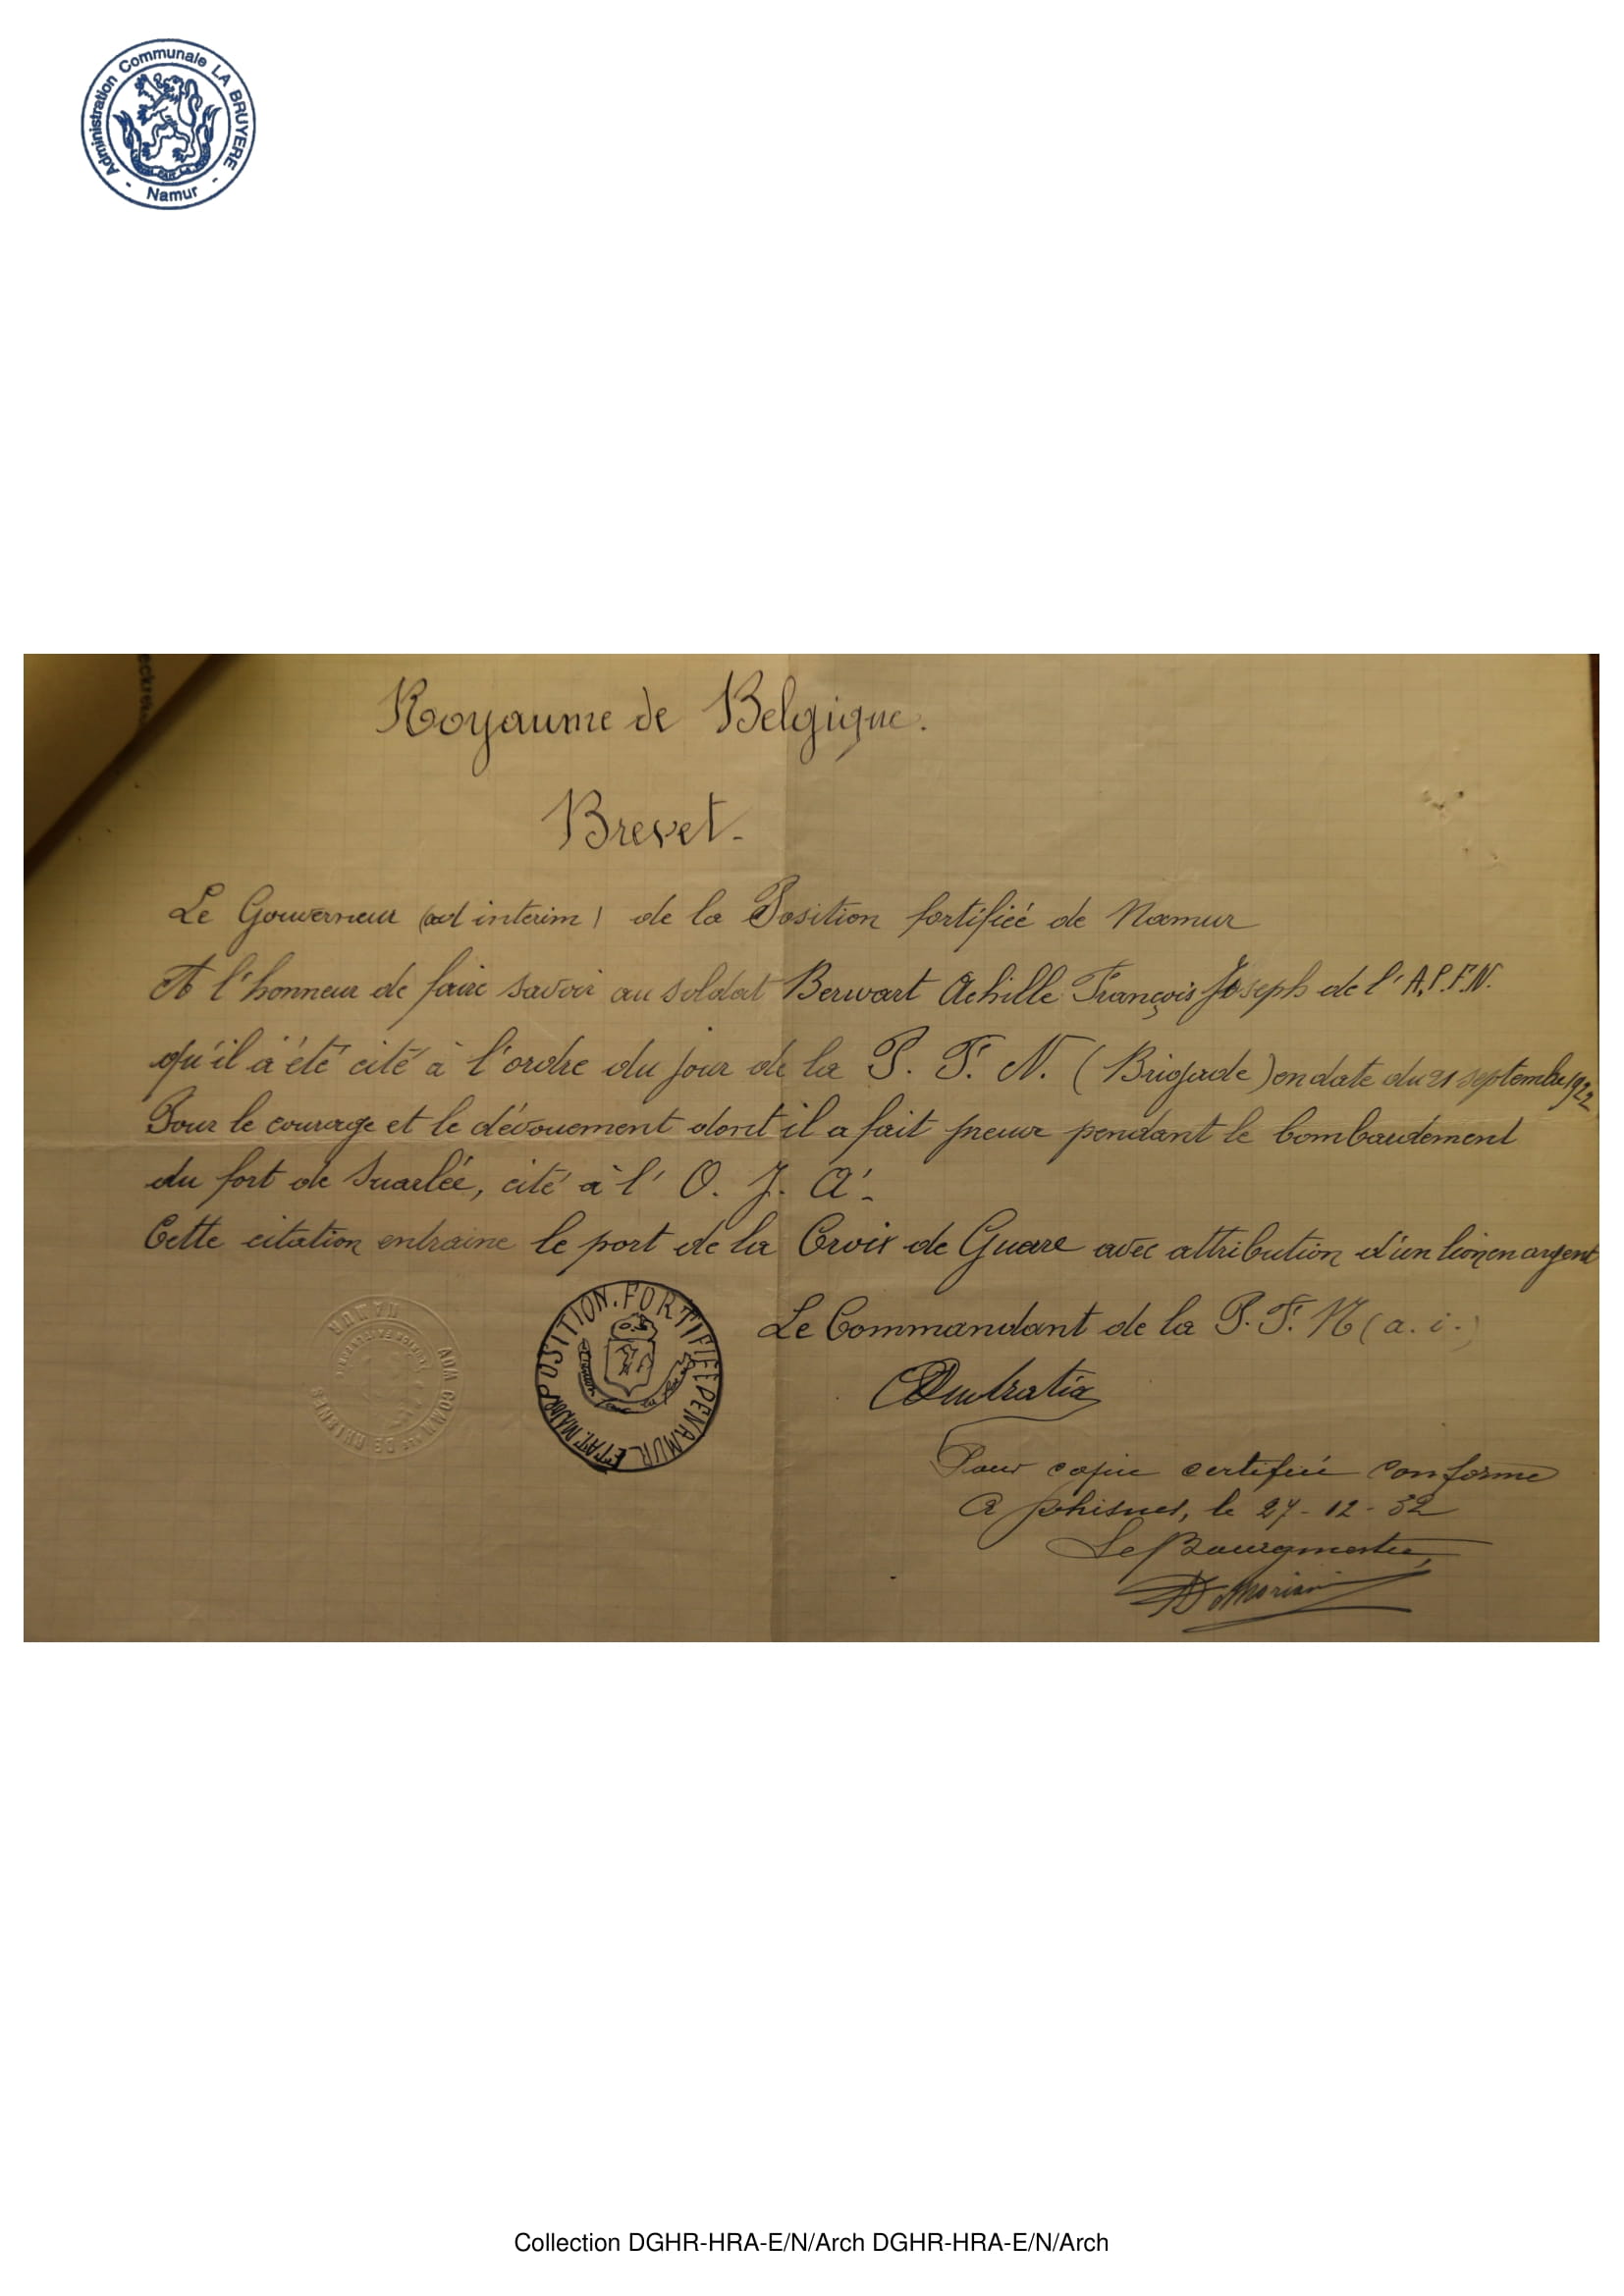 Administration Communale LA BRUYERE
- Namur -
Royaume de Belgique.
Brevet.
Le Gouverneur (ad intérim) de la Position fortifiée de Namur
A l'honneur de faire savoir au soldat Berwart Achille François Joseph de l'A.P.F.N.
qu'il a été cité à l'ordre du jour de la P. F. N. (Brigade) en date du 21 septembre 1922
Pour le courage et le dévouement dont il a fait preuve pendant le bombardement
du fort de Suarlée, cité à l' O. J. A.
Cette citation entraine le port de la Croix de Guerre avec attribution d'un lion en argent
POSITION FORTIFIÉE DE NAMUR ETAT MAJOR
Le Commandant de la P. F. N (a. i.)
Pour copie certifiée conforme
A Rhisnes, le 27-12-32
Le Bourgmestre,
Collection DGHR-HRA-E/N/Arch DGHR-HRA-E/N/Arch